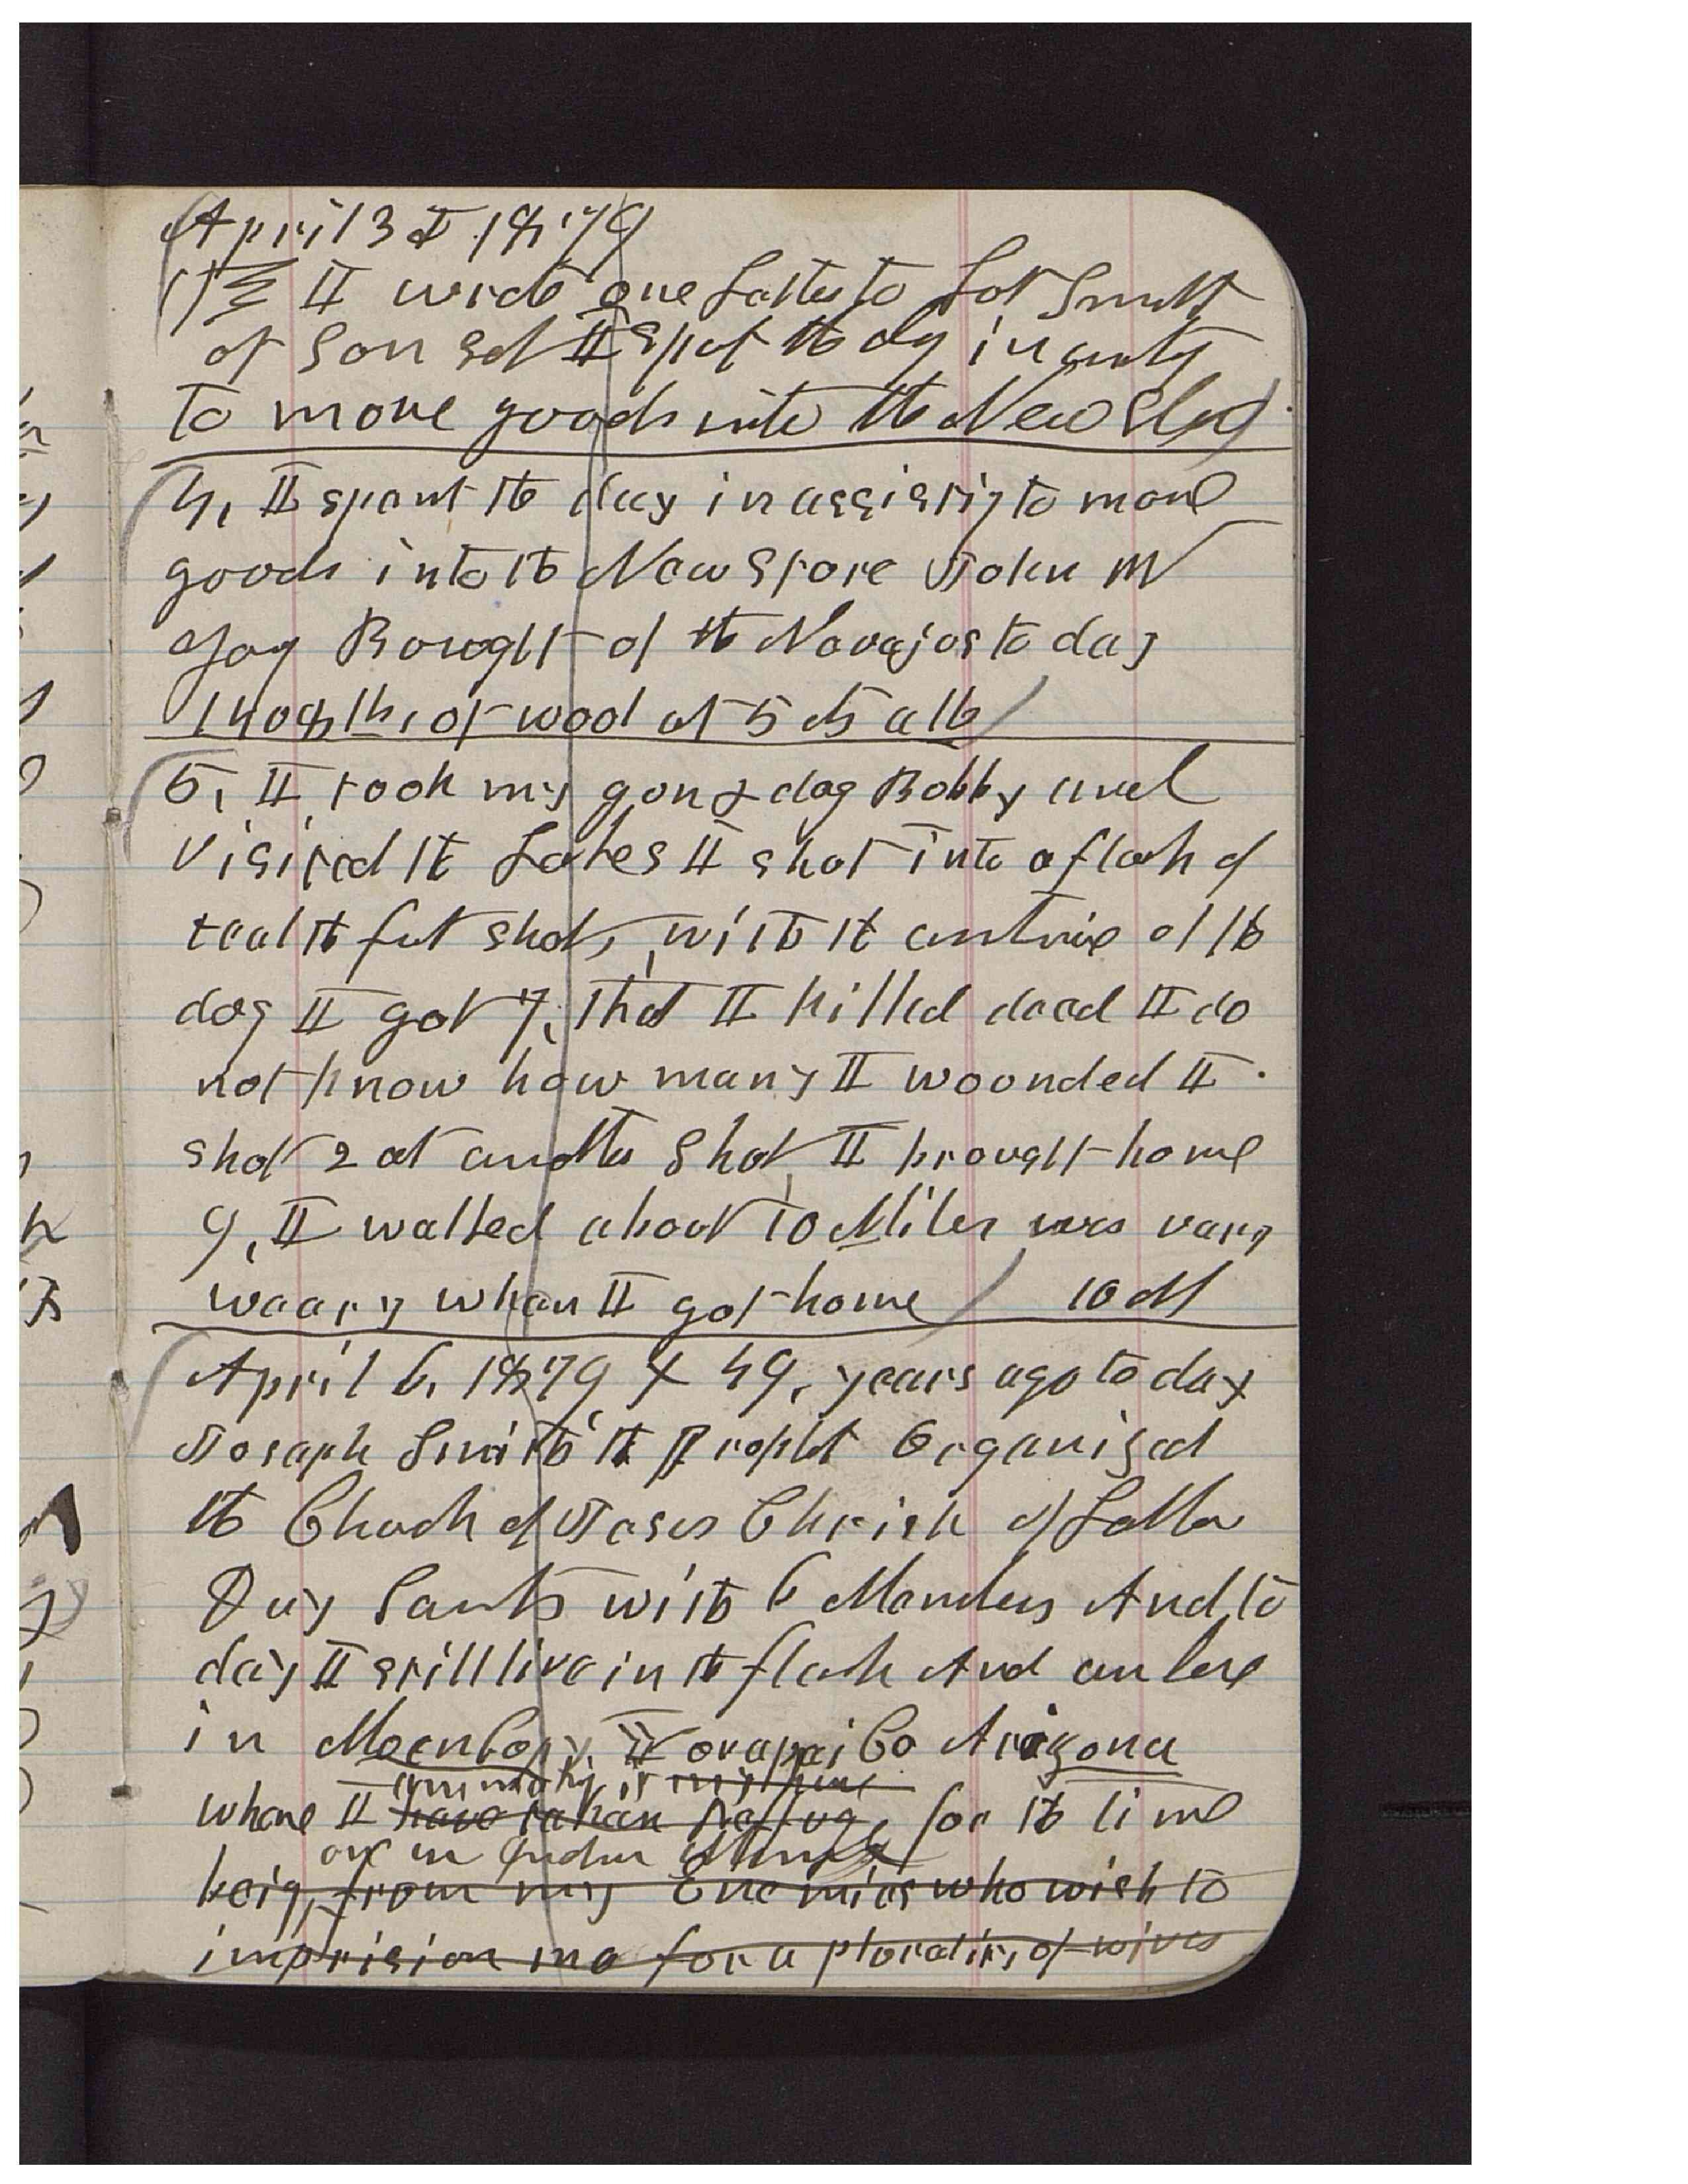 April 3d 1879
I wrote one Letter to Lot Smith
of Son Set I spent the day in
to move goods into the New Store
4, I spent the day in assisting to move
goods into the New Store John W
Young Bought of the Navajos to day
1408 lb, of wool at 5 cts a lb
5, I took my gun & dog Bobby and
visited the Lakes I shot into a flock of
teal the fust shot, with the of the
dog I got 7, that I killed dead I do
not know how many I woonded I
shot 2 at another shot I brought home
9, I walked about 10 Miles was vary
weary when I got home 10 M
April 6, 1879 49, years ago to day
Joseph Smith the Prophet Organized
the Chuch of Jesus Christ of Latter
Day Saints with 6 Members And to
day I still live in the flesh And am here
in Moencopy, Yovapai Co Arizona
where I have taken Refuge for the time
being, from my Enemies who wish to
imprision me for a plorality of wives